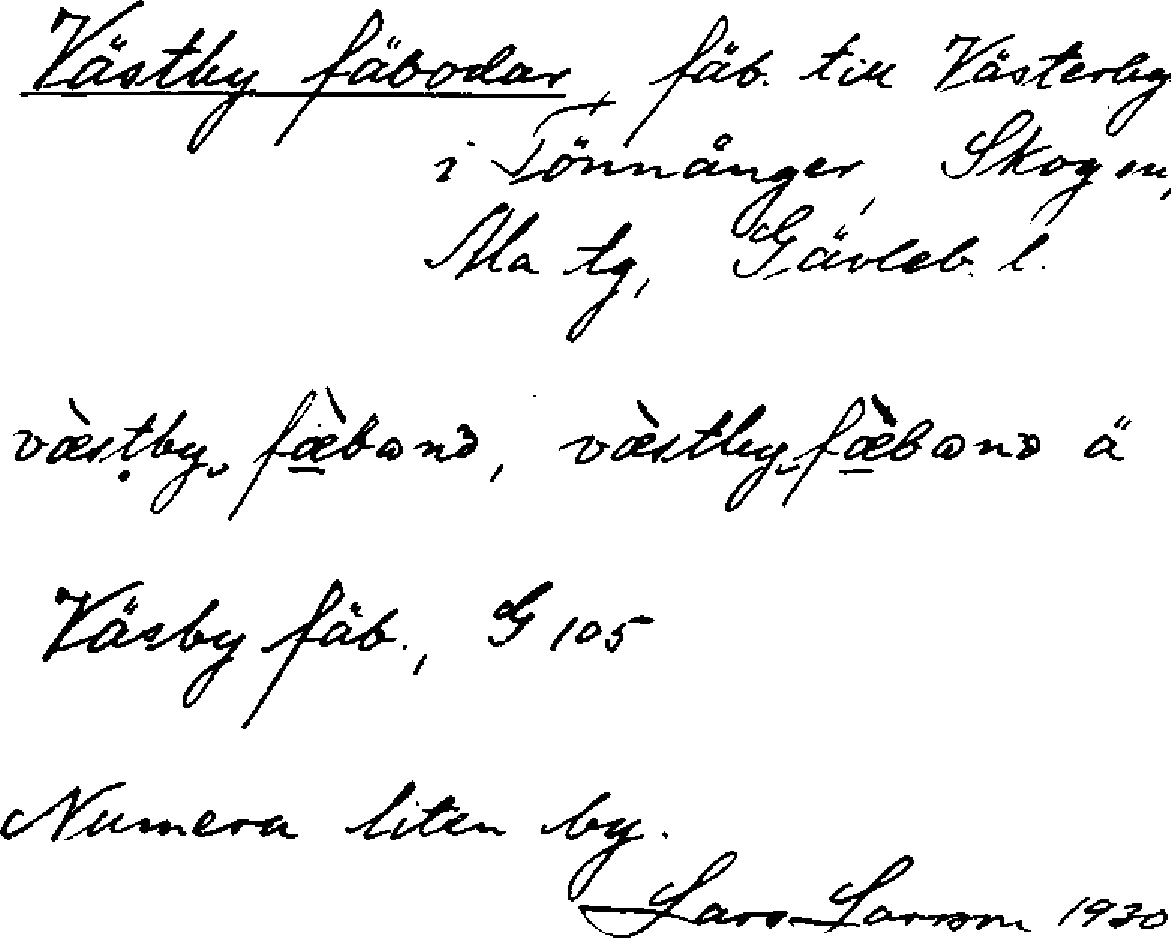 Västby fäbodar, fäb. till Västerby
i Tönnånger, Skog sn,
Ala tg, Gävleb. l.
væ̀stby fæ̀bωnə, væ̀stbyfæ̀bωnə ä
Väsby fäb., G 105
Numera liten by.
Lars Larsson 1930